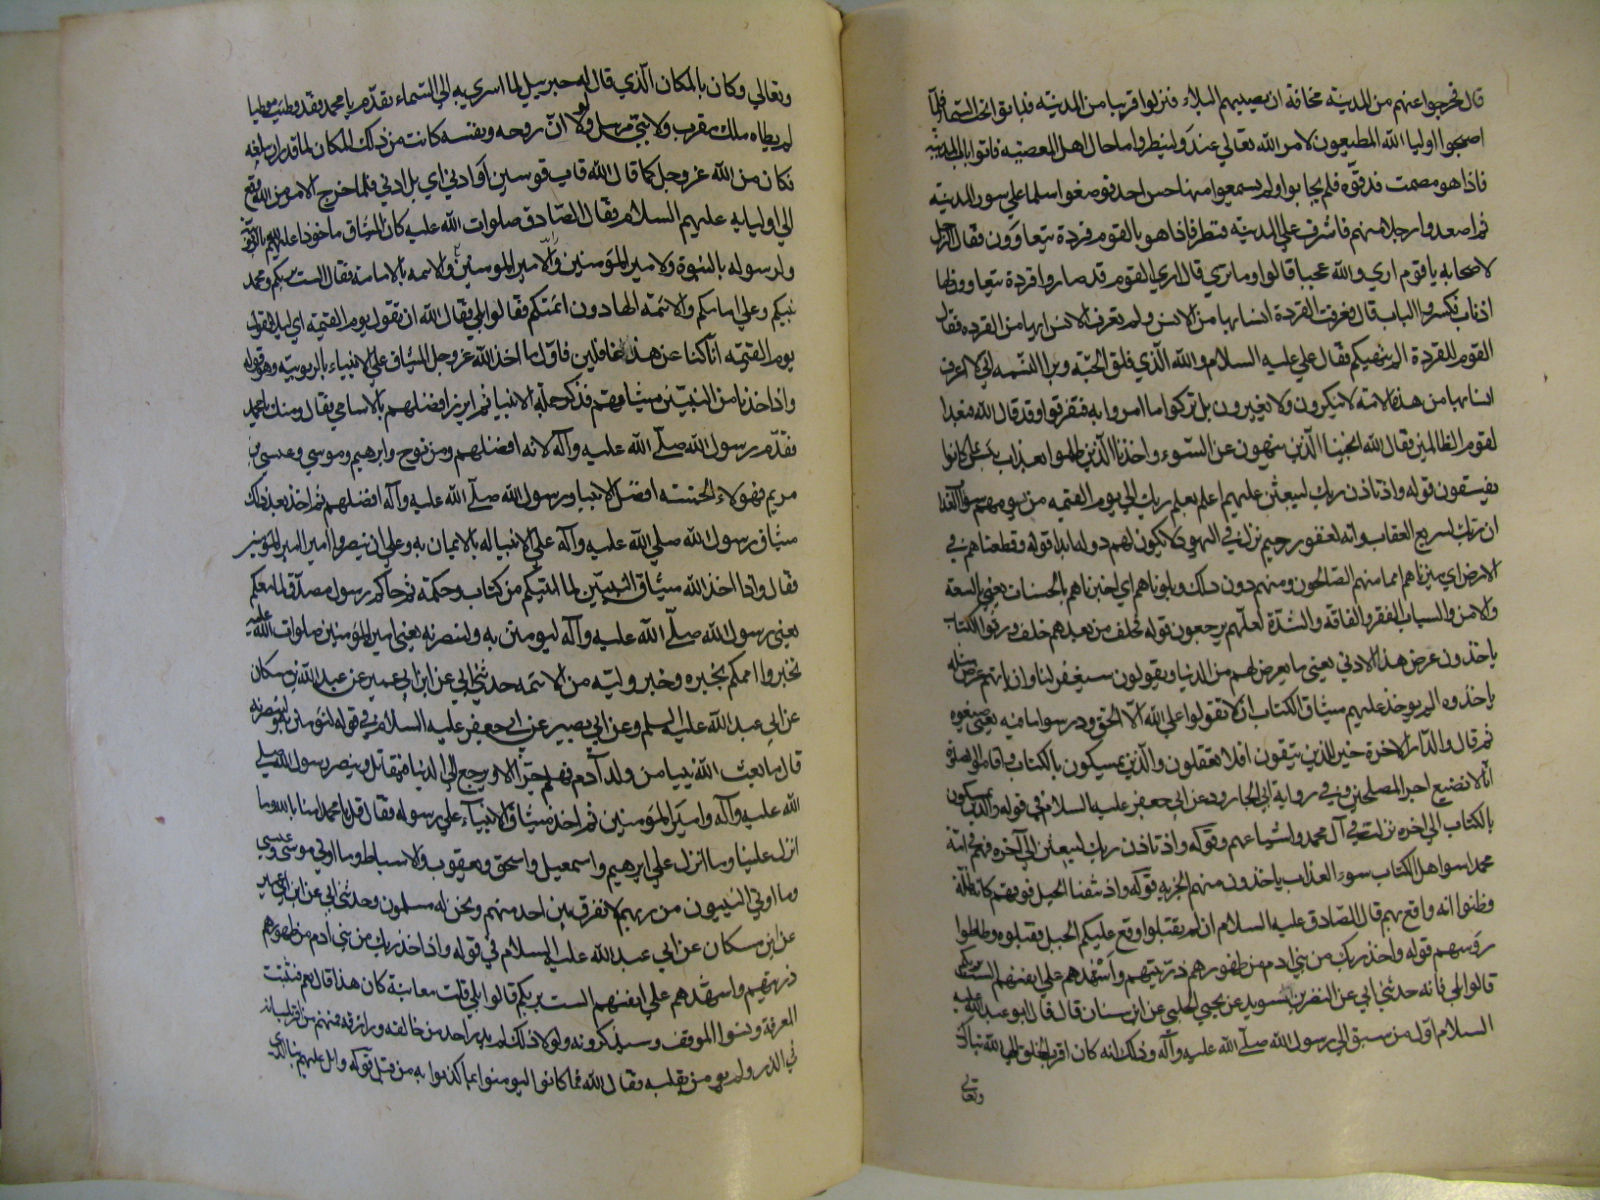 قال فخرجوا عنهم من المدينة مخافة ان يصيبهم البلاء فنزلوا قريبا من المدينة فباتوا تحت السماء فلما
اصبحوا اوليا الله المطيعون لامر الله تعالي غدو لينظروا ما حال اهل المعصية فاتوا باب المدينة
فاذا هو مصمت فدقوه فلم يجابوا ولم يسمعوا منها حس احد فوضعوا سلما علي سور المدينة
ثم اصعدوا رجلا منهم فاشرف علي المدينة فنظر فاذا هو بالقوم قردة يتعاوون فقال الرجل
لاصحابه يا قوم اري والله عجبا قالوا وما تري قال اري القوم قد صاروا قردة يتعاوون ولها
اذناب فكسروا الباب قال فعرفت القردة انسابها من الانس ولم تعرف الانس انسابها من القردة فقال
القوم للقردة الم ننهيكم فقال علي عليه السلام والله الذي فلق الحبة وبرا النسمة اني لاعرف
انسابها من هذه الامة لا ينكرون ولا يغيرون بل تركوا ما امروا به فتفرقوا وقد قال الله فبعدا
لقوم الظالمين فقال الله انجينا الذين ينهون عن السوء واخذنا الذين ظلموا بعذاب بئس بما كانوا
يفسقون قوله واذ تاذن ربك ليبعثن عليهم اعلم بعلم ربك الي يوم القيمة من يسومهم سوء العذاب
ان ربك لسريع العقاب وانه لغفور رحيم نزلت في اليهود لا يكون لهم دولة ابدا قوله وقطعناهم في
الارض اي ميزناهم امما منهم الصالحون ومنهم دون ذلك وبلوناهم اي اختبرناهم بالحسنات يعني بالسعة
والامن والسيات الفقر والفاقة والشدة لعلهم يرجعون قوله فخلف من بعدهم خلف ورثوا الكتاب
ياخذون عرض هذا الادني يعني ما يعرض لهم من الدنيا ويقولون سيغفر لنا وان ياتهم عرض مثله
ياخذوه الم يوخذ عليهم ميثاق الكتاب ان لا تقولوا علي الله الا الحق ودرسوا ما فيه يعني ضيعوه
ثم قال والدار الاخرة خير للذين يتقون افلا تعقلون والذين يمسكون بالكتاب واقاموا الصلوة
انا لا نضيع اجر المصلحين وفي رواية ابي الجارود عن ابي جعفر عليه السلام في قوله والذين يمسكون
بالكتاب الي اخره نزلت في آل محمد واشياعهم وقوله واذ تاذن ربك ليبعثن الي آخره فهم في امة
محمد اسوا اهل الكتاب سوء العذاب ياخذون منهم الجزية قوله واذ نتقنا الجبل فوقهم كانه ظلة
وظنوا انه واقع بهم قال الصادق عليه السلام ان لم يقبلوا وقع عليكم الجبل فقبلوه وطاطوا
روسهم قوله واخذ ربك من بني ادم من ظهورهم ذريتهم واشهدهم علي انفسهم الست بربكم
قالوا بلي فانه حدثني ابي عن النضر بن سويد عن يحيي الحلبي عن ابن سنان قال قال ابو عبد الله عليه
السلام اول من سبق الي رسول الله صلي الله عليه وآله وذلك انه كان اقرب الخلق الي الله تبارك
وتعالي
وتعالي وكان بالمكان الذي قال له جبرييل لما اسري به الي السماء تقدم يا محمد فقد وطئت موطيا
لم يطاه ملك مقرب ولا نبي مرسل ولولا ان روحه ونفسه كانت من ذلك المكان لما قدر ان يبلغه
فكان من الله عز وجل كما قال الله قاب قوسين او ادني اي بل ادني فلما خرج الامر من الله وقع
الي اوليايه عليهم السلام فقال الصادق صلوات الله عليه كان الميثاق ماخوذا عليهم لله بالربوبية
ولرسوله بالنبوة ولامير المومنين والائمة بالامامة فقال الست بربكم ومحمد
نبيكم وعلي امامكم والائمة الهادون ائمتكم فقالوا بلي فقال الله ان تقول يوم القيمة اي ليلا تقول
يوم القيمة انا كنا عن هذا غافلين فاول ما اخذ الله عز وجل الميثاق علي الانبياء بالربوبية وهو قوله
واذ اخذنا من النبيين ميثاقهم فذكر جملة الانبيا ثم ابرز افضلهم بالاسامي فقال ومنك يا محمد
فقدم رسول الله صلي الله عليه وآله لانه افضلهم ومن نوح وابرهيم وموسي وعيسي بن
مريم فهولاء الخمسة افضل الانبيا ورسول الله صلي الله عليه وآله افضلهم ثم اخذ بعد ذلك
ميثاق رسول الله صلي الله عليه وآله علي الانبيا له بالايمان به وعلي ان ينصروا امير المومنين
فقال واذ اخذ الله ميثاق النبيين لما اتيتكم من كتاب وحكمة ثم جاكم رسول مصدق لما معكم
يعني رسول الله صلي الله عليه وآله ليومنن به ولتنصرنه يعني امير المومنين صلوات الله عليه
تخبروا اممكم بخبره وخبر وليه من الائمة حدثني ابي عن ابن ابي عمير عن عبد الله بن مسكان
عن ابي عبد الله عليه السلم وعن ابي بصير عن ابي جعفر عليه السلام في قوله لتومنن به ولتنصرنه
قال ما بعث الله نبيا من ولد آدم فهلم جرا الا ويرجع الي الدنيا فيقاتل وينصر رسول الله صلي
الله عليه وآله وامير المومنين ثم اخذ ميثاق الانبياء علي رسوله فقال قل يا محمد امنا بالله وما
انزل علينا وما انزل علي ابرهيم واسمعيل واسحق ويعقوب والاسباط وما اوتي موسي وعيسي
وما اوتي النبيون من ربهم لا نفرق بين احد منهم ونحن له مسلمون وحدثني ابي عن ابن ابي عمير
عن ابن مسكان عن ابي عبد الله عليه السلام في قوله واذ اخذ ربك من بني ادم من ظهورهم
ذريتهم واشهدهم علي انفسهم الست بربكم قالوا بلي قلت معاينة كان هذا قال نعم فثبتت
المعرفة ونسوا الموقف وسيذكرونه ولولا ذلك لم يدر احد من خالقه ورازقه فمنهم من اقر بلسانه
في الذر ولم يومن بقلبه فقال الله فما كانوا ليومنوا بما كذبوا به من قبل قوله واتل عليهم نبا الذي